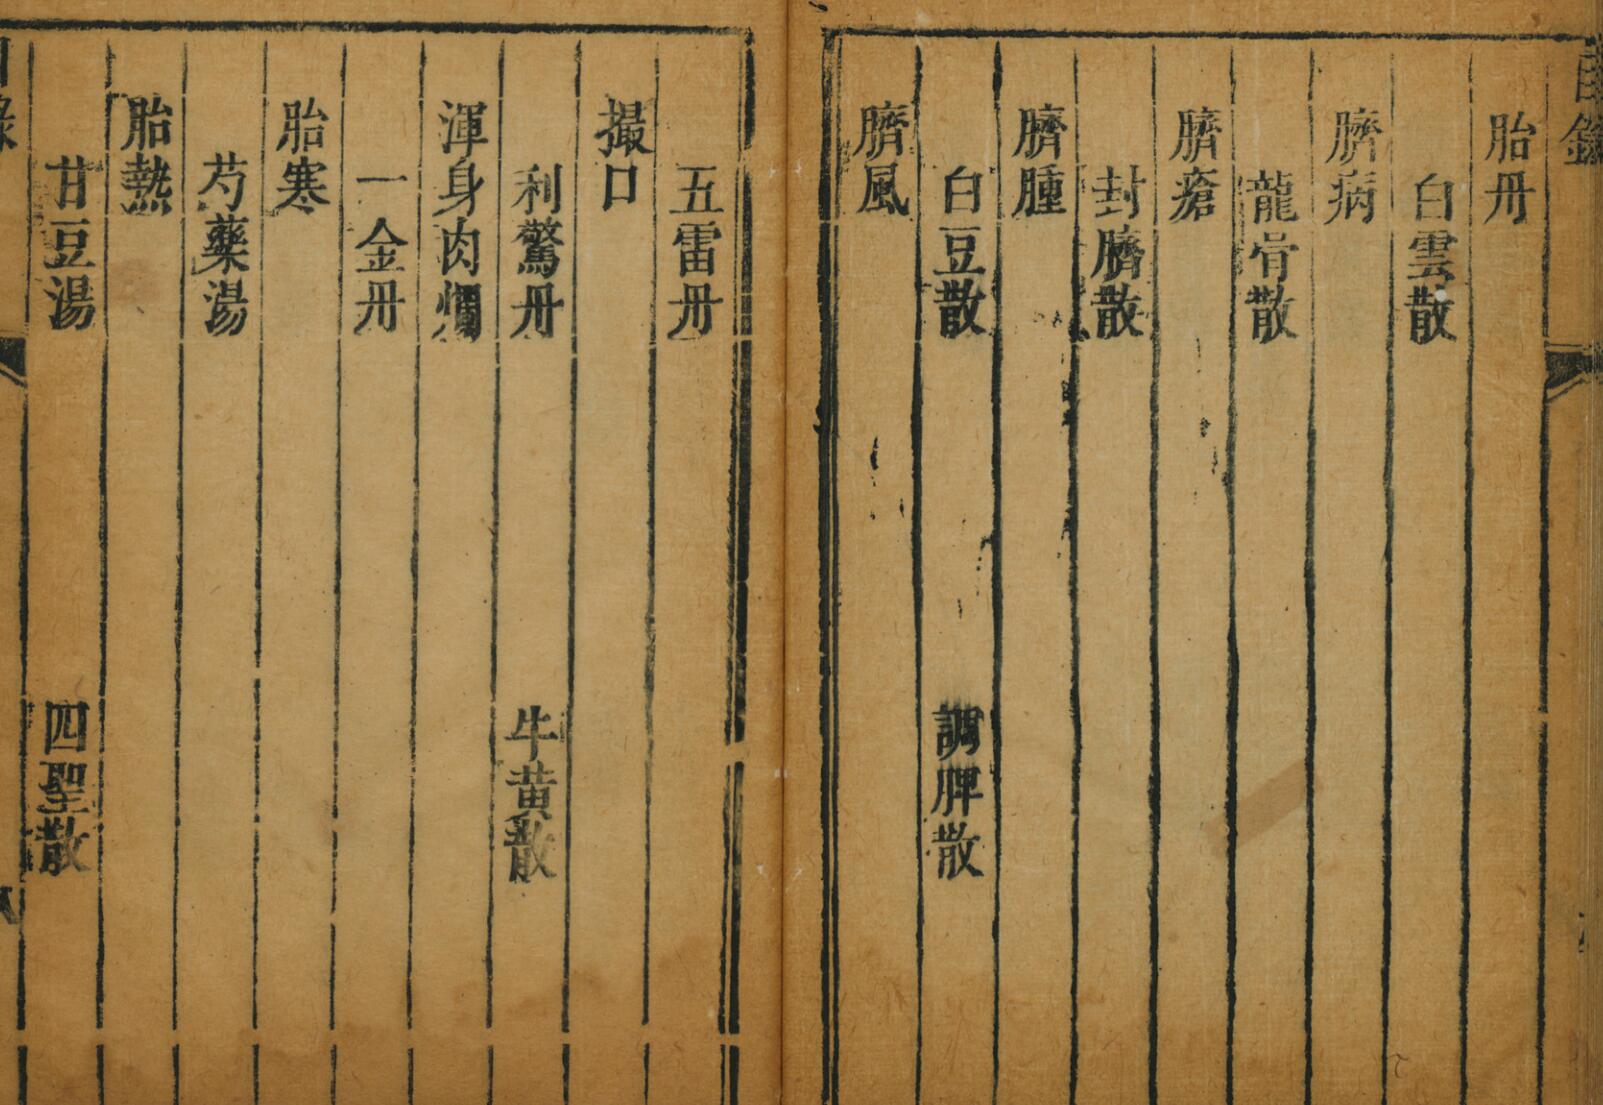 目錄
胎丹
白雲散
臍病
龍骨散
臍瘡
封臍散
臍腫
白豆散 調脾散
臍風
五雷丹
撮口
利驚丹 牛黃散
渾身肉爛
一金丹
胎寒
芍藥湯
胎熱
甘豆湯 四聖散
目錄